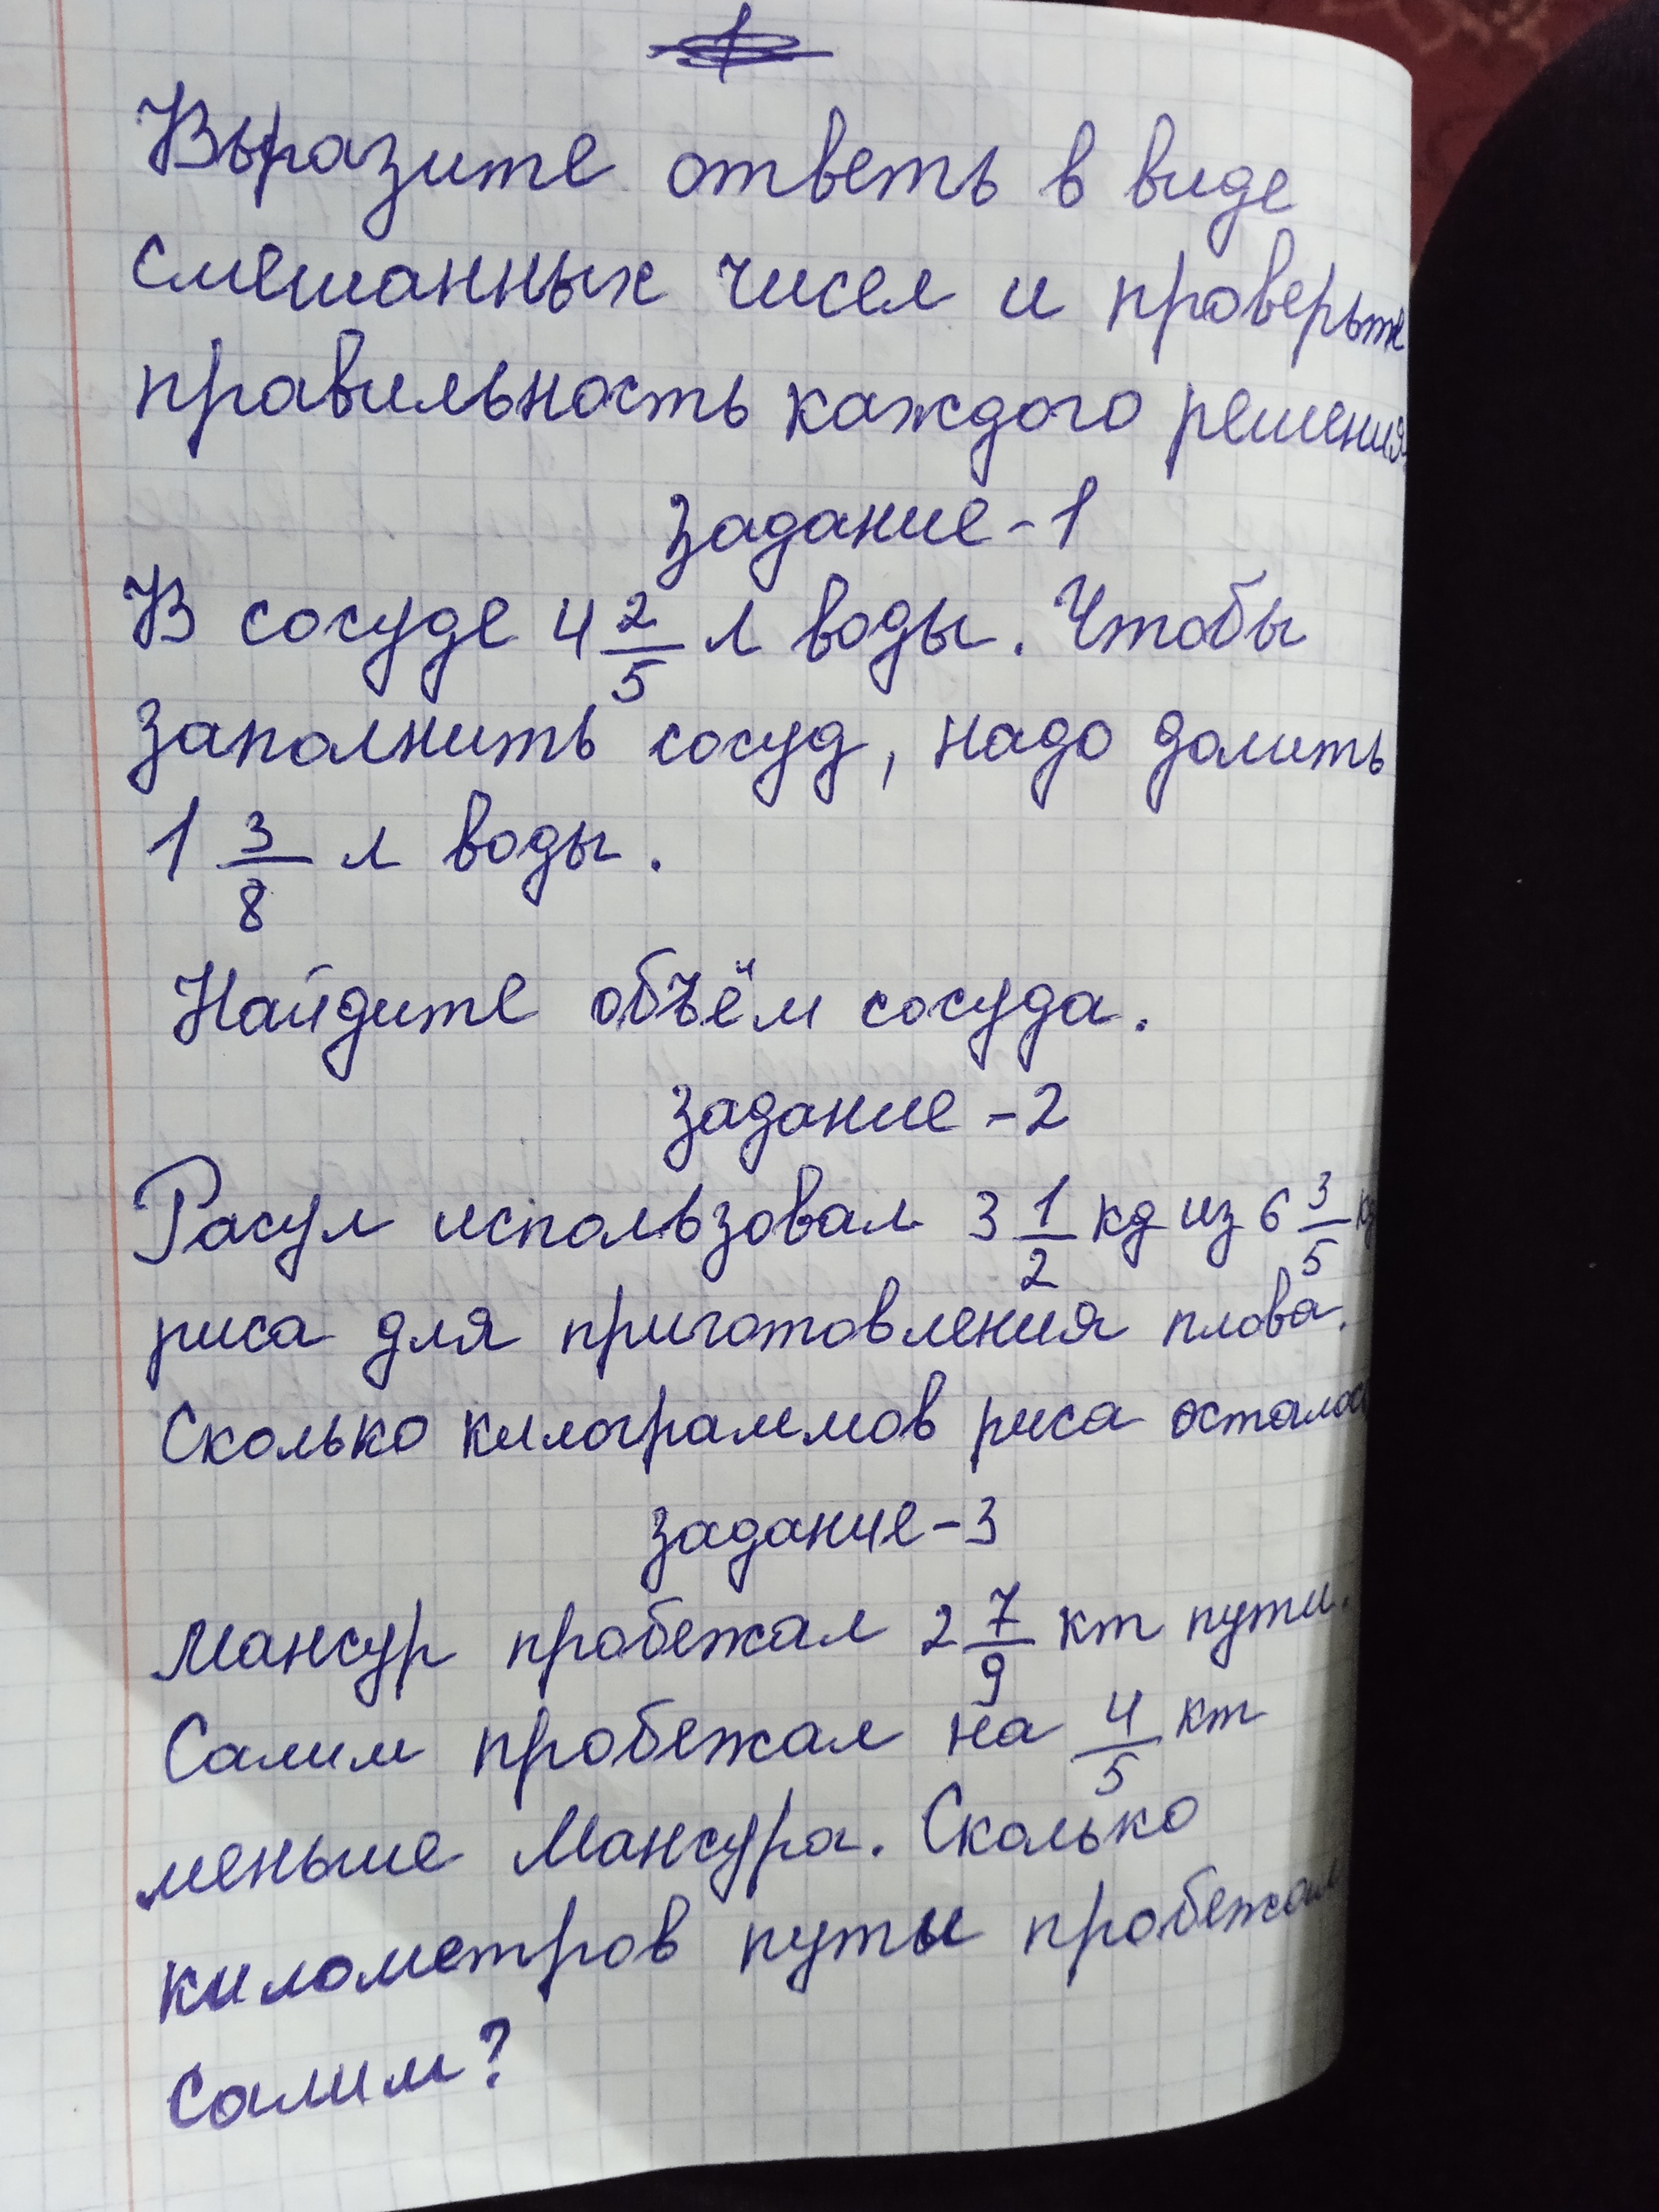 Выразите ответь в виде
смешанных чисел и проверьте
правильность каждого решения
задание-1
В сосуде 4 2/5 л воды. Чтобы
заполнить сосуд, надо долить
1 3/8 л воды.
Найдите объём сосуда.
задание-2
Расул использовал 3 1/2 кг из 6 3/5 кг
риса для приготовления плова.
Сколько килограммов риса осталось
задание-3
Мансур пробежал 2 7/9 км пути.
Салим пробежал на 4/5 км
меньше Мансура. Сколько
километров путы пробежал
Салим?